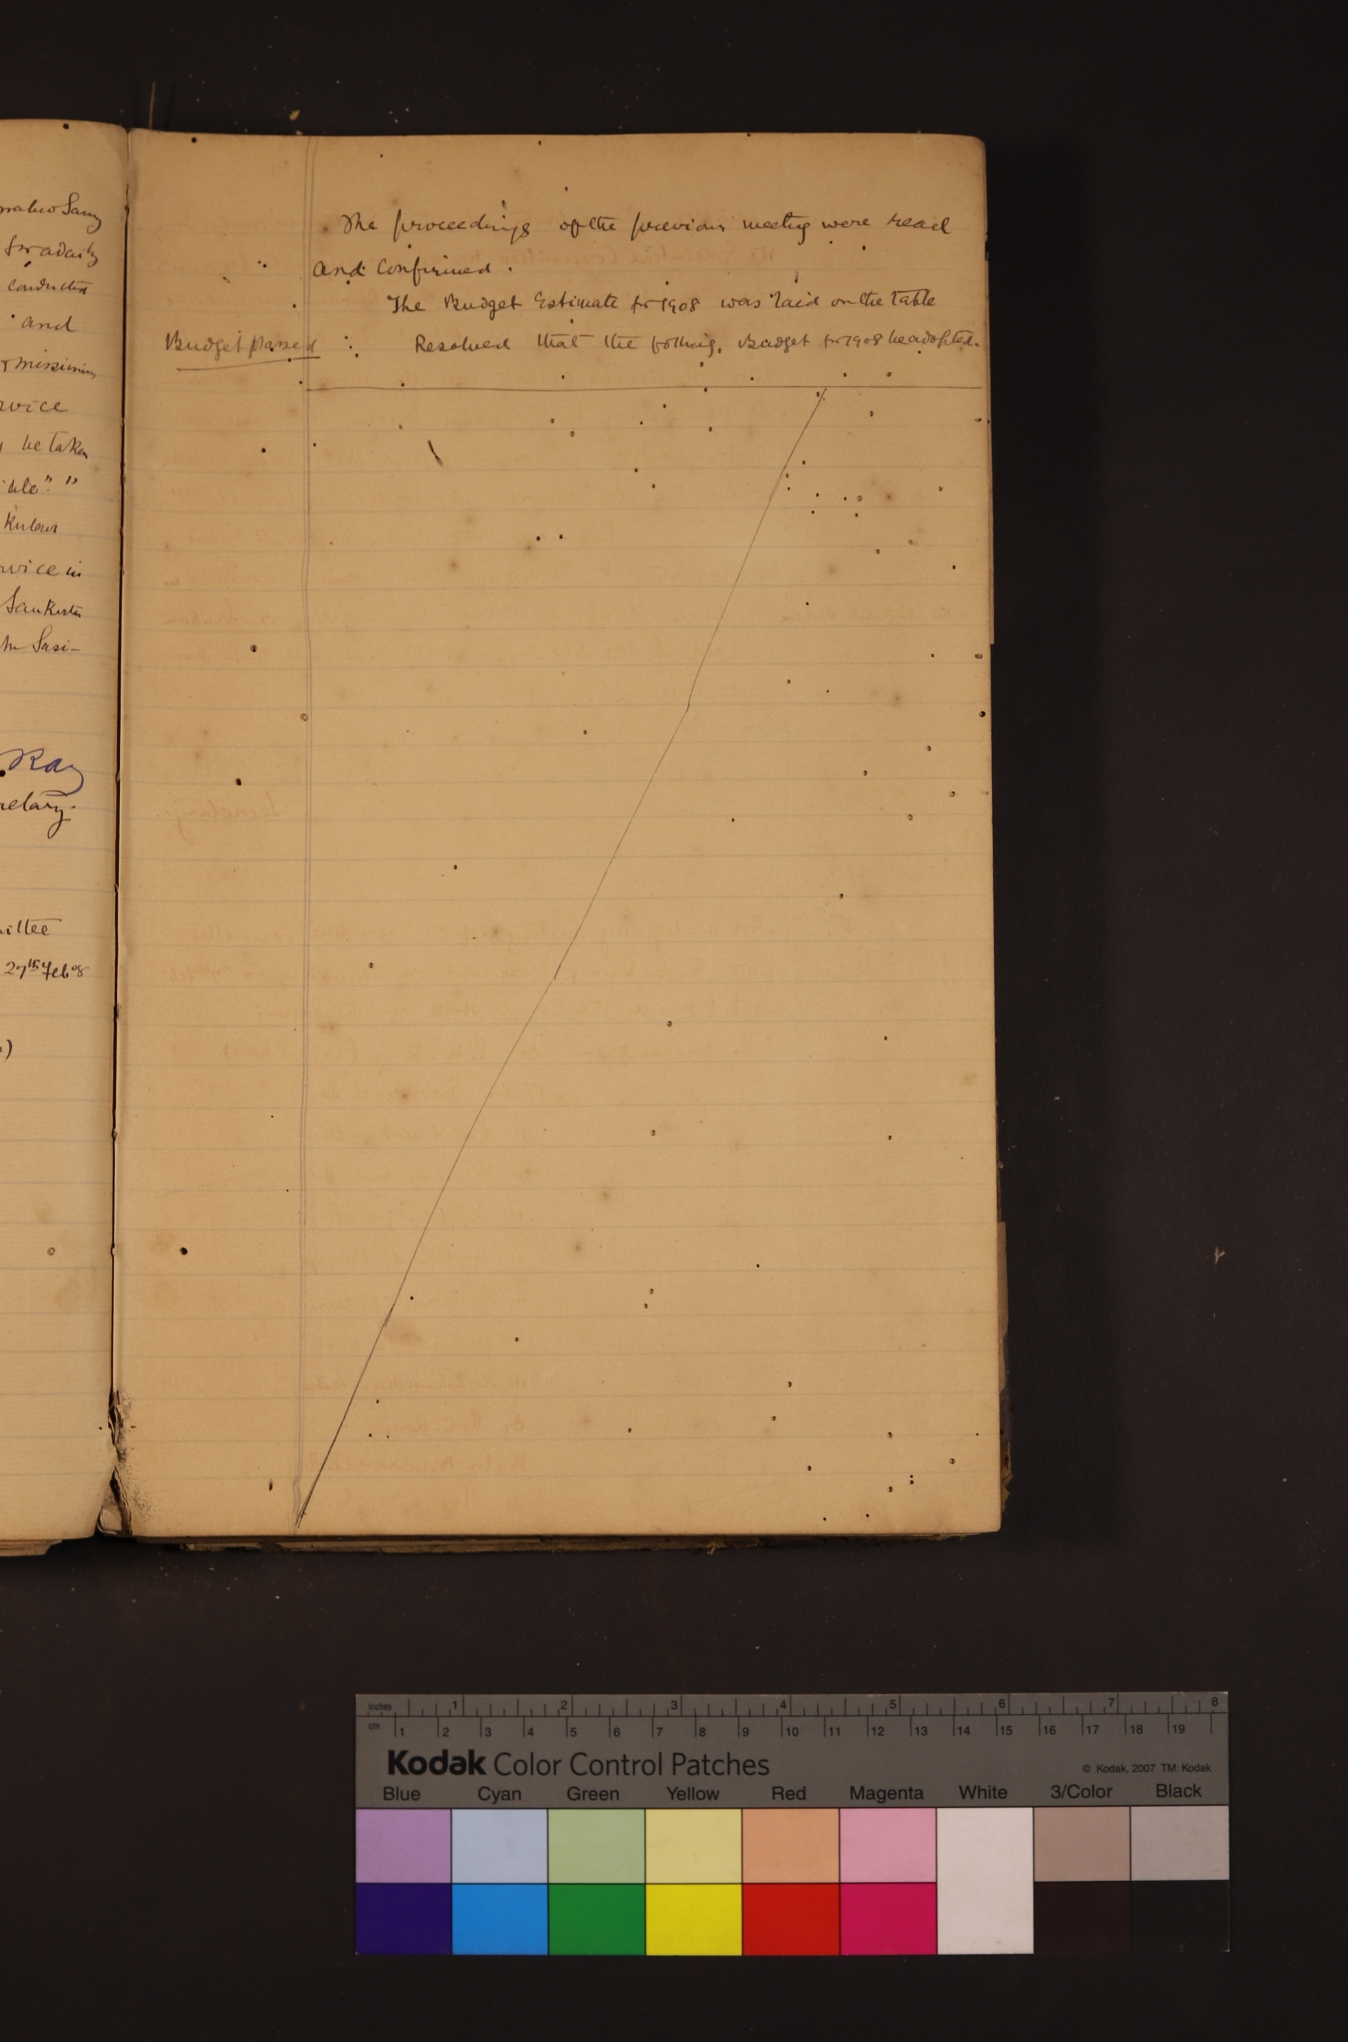 Samy
for adaily
conducted
and
missionary
rvice
be taken
ible" "
Kirtan
rvice in
Sankirtan
Sasi-
Ray
retary.
mittee
27th Feb 08
The proceedings of the previous meeting were read
and confirmed.
The Budget Estimate for 1908 was laid on the table
Budget passed
Resolved that the follwig. Budget for 1908 be adopted.
inches 1 2 3 4 5 6 7 8
cm 1 2 3 4 5 6 7 8 9 10 11 12 13 14 15 16 17 18 19
Kodak Color Control Patches
© Kodak, 2007 TM: Kodak
Blue Cyan Green Yellow Red Magenta White 3/Color Black